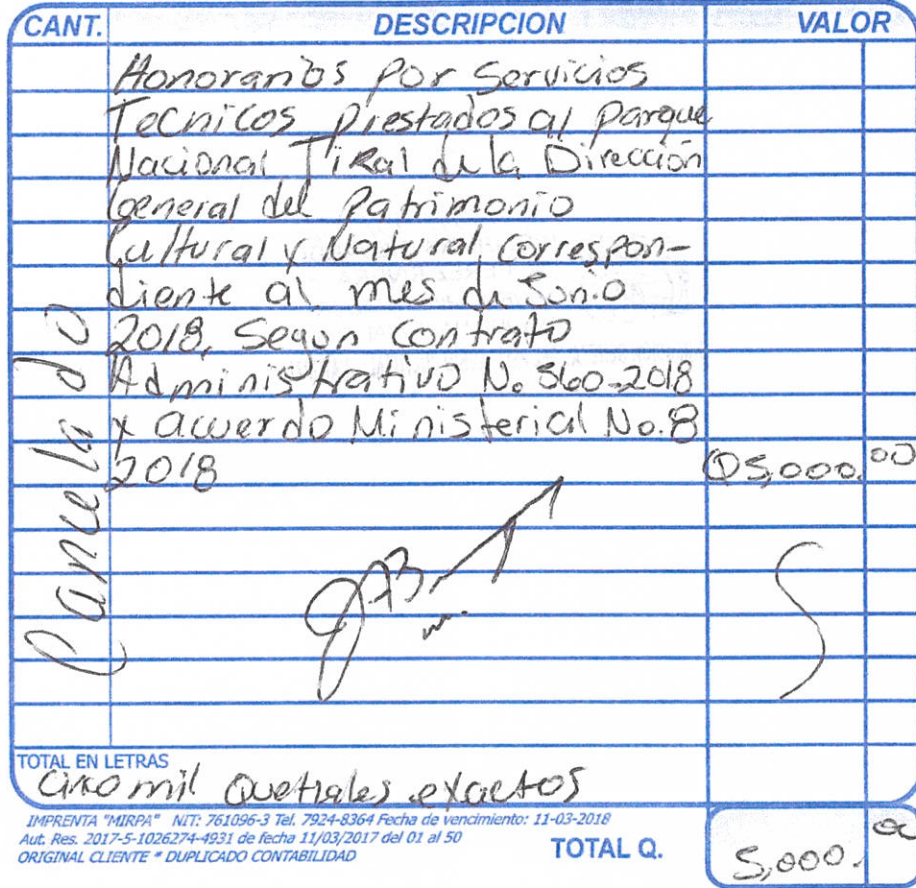 CANT. DESCRIPCION VALOR
Honorarios por Servicios
Tecnicos prestados al parque
Nacional Tikal de la Dirección
General del Patrimonio
Cultural y Natural, correspon-
diente al mes de Junio
2018, Segun Contrato
Administrativo No. 560-2018
y acuerdo Ministerial No. 8
2018 Q5,000.00
Cancelado
TOTAL EN LETRAS
Cinco mil Quetzales exactos
IMPRENTA "MIRPA" NIT: 761096-3 Tel. 7924-8364 Fecha de vencimiento: 11-03-2018
Aut. Res. 2017-5-1026274-4931 de fecha 11/03/2017 del 01 al 50
ORIGINAL CLIENTE * DUPLICADO CONTABILIDAD
TOTAL Q. 5,000.00